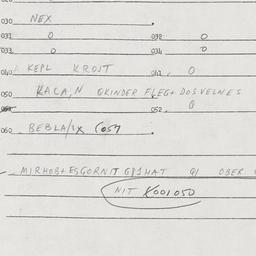 030 NEX
031 0 032 0
033 0 034 0
040 KEPL KROST 041, 0
050 KACA,N GKINDER FLEG+ DOSVELNES
052, 0
060 BEBLA/3X (057
MIRHOB+ESGORNIT GP1HAT G/ OBER
NIT K001050